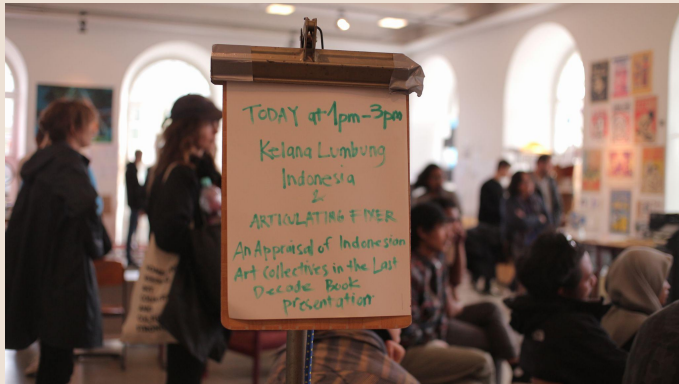 TODAY at 1pm-3pm
Kelana Lumbung
Indonesia
&
ARTICULATING FIXER
An Appraisal of Indonesian
Art Collectives in the Last
Decade Book
presentation